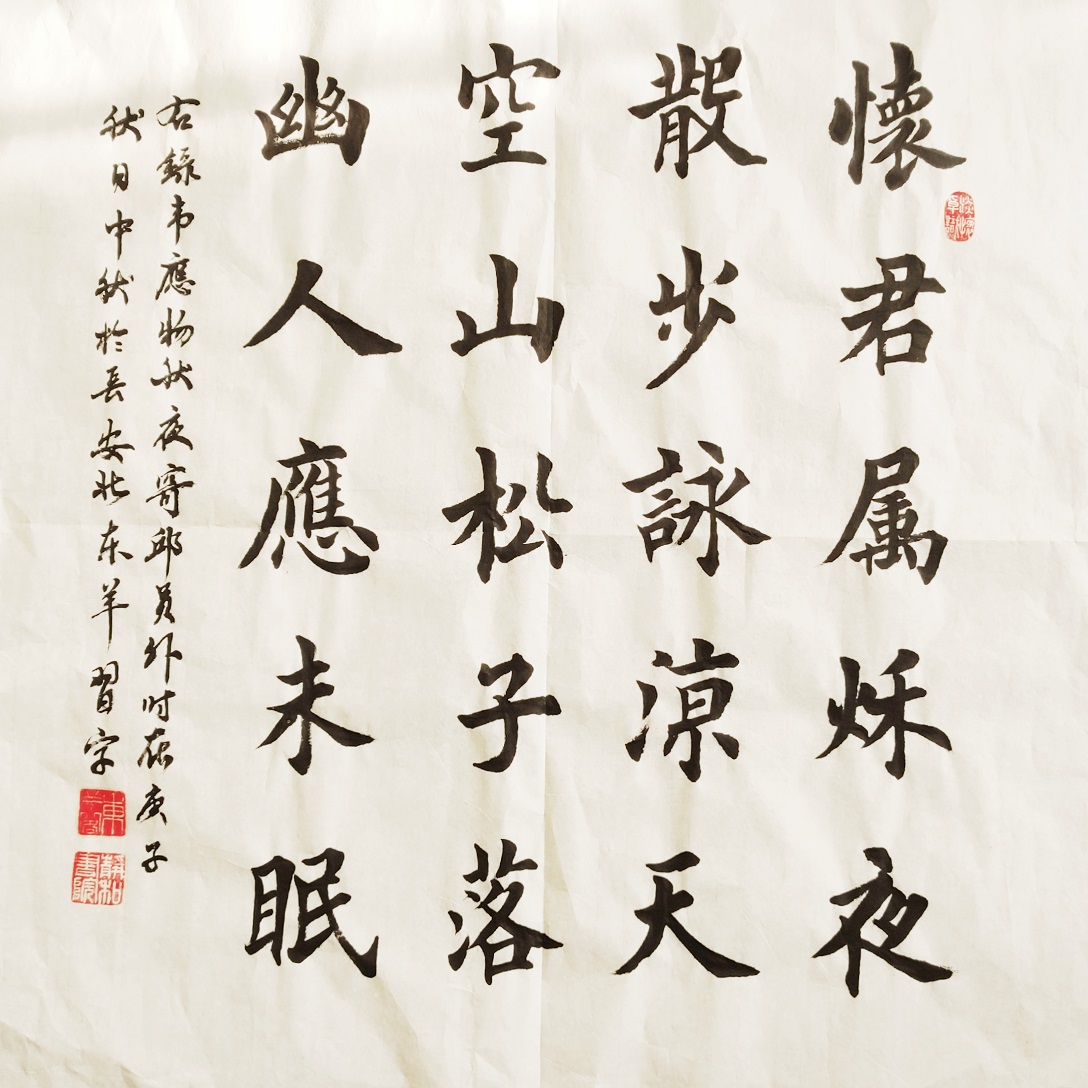 懷君属秌夜
散步詠涼天
空山松子落
幽人應未眠
右錄韦應物秋夜寄邱員外时在庚子
秋日中秋於長安北东羊習字